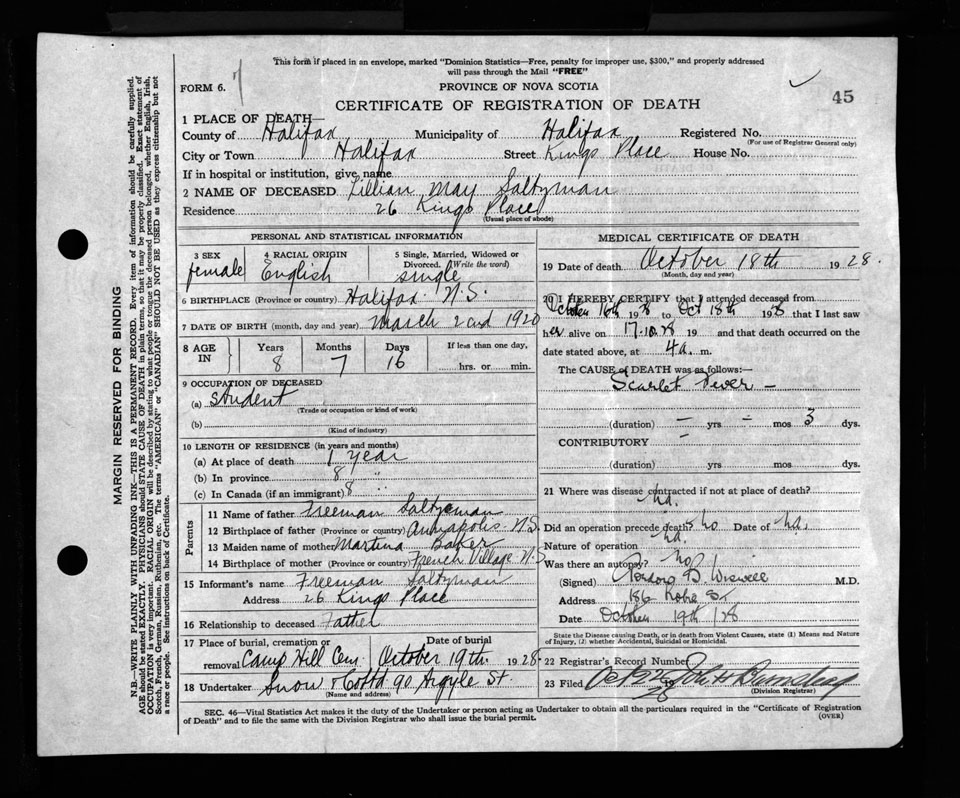 This form if placed in an envelope, marked "Dominion Statistics—Free, penalty for improper use, $300," and properly addressed
will pass through the Mail "FREE"
FORM 6.
PROVINCE OF NOVA SCOTIA
45
CERTIFICATE OF REGISTRATION OF DEATH
1 PLACE OF DEATH—
County of Halifax Municipality of Halifax Registered No.
(For use of Registrar General only)
City or Town Halifax Street Kings Place House No.
If in hospital or institution, give name
2 NAME OF DECEASED Lillian May Saltzman
Residence 26 Kings Place
(Usual place of abode)
PERSONAL AND STATISTICAL INFORMATION
3 SEX 4 RACIAL ORIGIN 5 Single, Married, Widowed or
Divorced. (Write the word)
female English single
6 BIRTHPLACE (Province or country) Halifax N.S.
7 DATE OF BIRTH (month, day and year) March 2nd 1920
8 AGE IN Years Months Days If less than one day,
8 7 16 hrs. or min.
9 OCCUPATION OF DECEASED
(a) Student
(Trade or occupation or kind of work)
(b)
(Kind of industry)
10 LENGTH OF RESIDENCE (in years and months)
(a) At place of death 1 year
(b) In province 8 "
(c) In Canada (if an immigrant) 8
Parents
11 Name of father Freeman Saltzman
12 Birthplace of father (Province or country) Annapolis N.S.
13 Maiden name of mother Martina Baker
14 Birthplace of mother (Province or country) French Village N.S
15 Informant's name Freeman Saltzman
Address 26 Kings Place
16 Relationship to deceased Father
17 Place of burial, cremation or Date of burial
removal Camp Hill Cem October 19th 1928
18 Undertaker Snow & Co Ltd 90 Argyle St.
(Name and address)
MEDICAL CERTIFICATE OF DEATH
19 Date of death October 18th 1928.
(Month, day and year)
20 I HEREBY CERTIFY that I attended deceased from
October 16th 1928 to Oct 18th 1928 that I last saw
her alive on 17.10.28 19 and that death occurred on
date stated above, at 4 a. m.
The CAUSE of DEATH was as follows:—
Scarlet Fever —
(duration) — yrs — mos 3 dys.
CONTRIBUTORY —
(duration) yrs mos dys.
21 Where was disease contracted if not at place of death?
na.
Did an operation precede death? no Date of na.
Nature of operation na.
Was there an autopsy? no
(Signed) D. Wiswell M.D.
Address 186 St
Date October 19th /28
State the Disease causing Death, or in death from Violent Causes, state (1) Means and Nature
of Injury, (2) whether Accidental, Suicidal or Homicidal.
22 Registrar's Record Number
23 Filed
(Division Registrar)
SEC. 46—Vital Statistics Act makes it the duty of the Undertaker or person acting as Undertaker to obtain all the particulars required in the "Certificate of Registration
of Death" and to file the same with the Division Registrar who shall issue the burial permit.
(OVER)
MARGIN RESERVED FOR BINDING
N.B.—WRITE PLAINLY WITH UNFADING INK—THIS IS A PERMANENT RECORD. Every item of information should be carefully supplied.
AGE should be stated EXACTLY. PHYSICIANS should STATE CAUSE OF DEATH in plain terms, so that it may be properly classified. Exact statement of
OCCUPATION is very important. RACIAL ORIGIN will be described by stating to what people or tongue the deceased person belonged, whether English, Irish,
Scotch, French, German, Russian, Ruthenian, etc. The terms "AMERICAN" or "CANADIAN" SHOULD NOT BE USED as they express citizenship but not
a race or people. See instructions on back of Certificate.